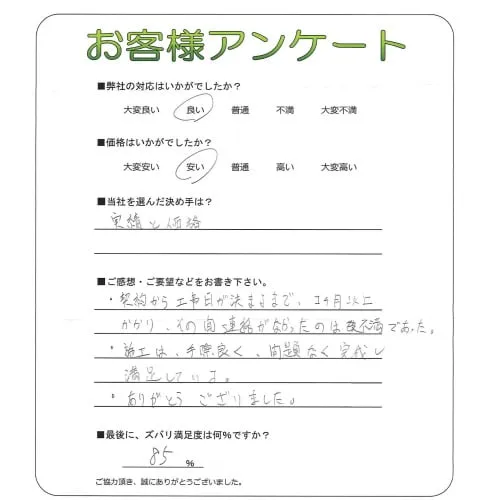 お客様アンケート
■弊社の対応はいかがでしたか?
大変良い 良い 普通 不満 大変不満
■価格はいかがでしたか?
大変安い 安い 普通 高い 大変高い
■当社を選んだ決め手は?
実績と価格
■ご感想・ご要望などをお書き下さい。
・契約から工事日が決まるまで、1ヶ月以上
かかり、その間連絡がなかったのは不満であった。
・施工は、手際良く、問題なく完成し
満足しています。
・ありがとうございました。
■最後に、ズバリ満足度は何%ですか?
85 %
ご協力頂き、誠にありがとうございました。